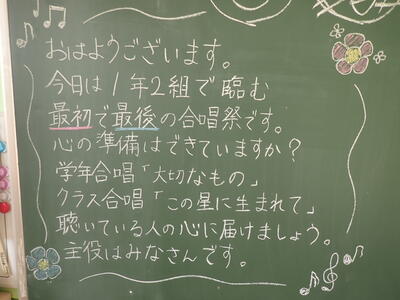 おはようございます。
今日は1年2組で臨む
最初で最後の合唱祭です。
心の準備はできていますか?
学年合唱「大切なもの」
クラス合唱「この星に生まれて」
聴いている人の心に届けましょう。
主役はみなさんです。